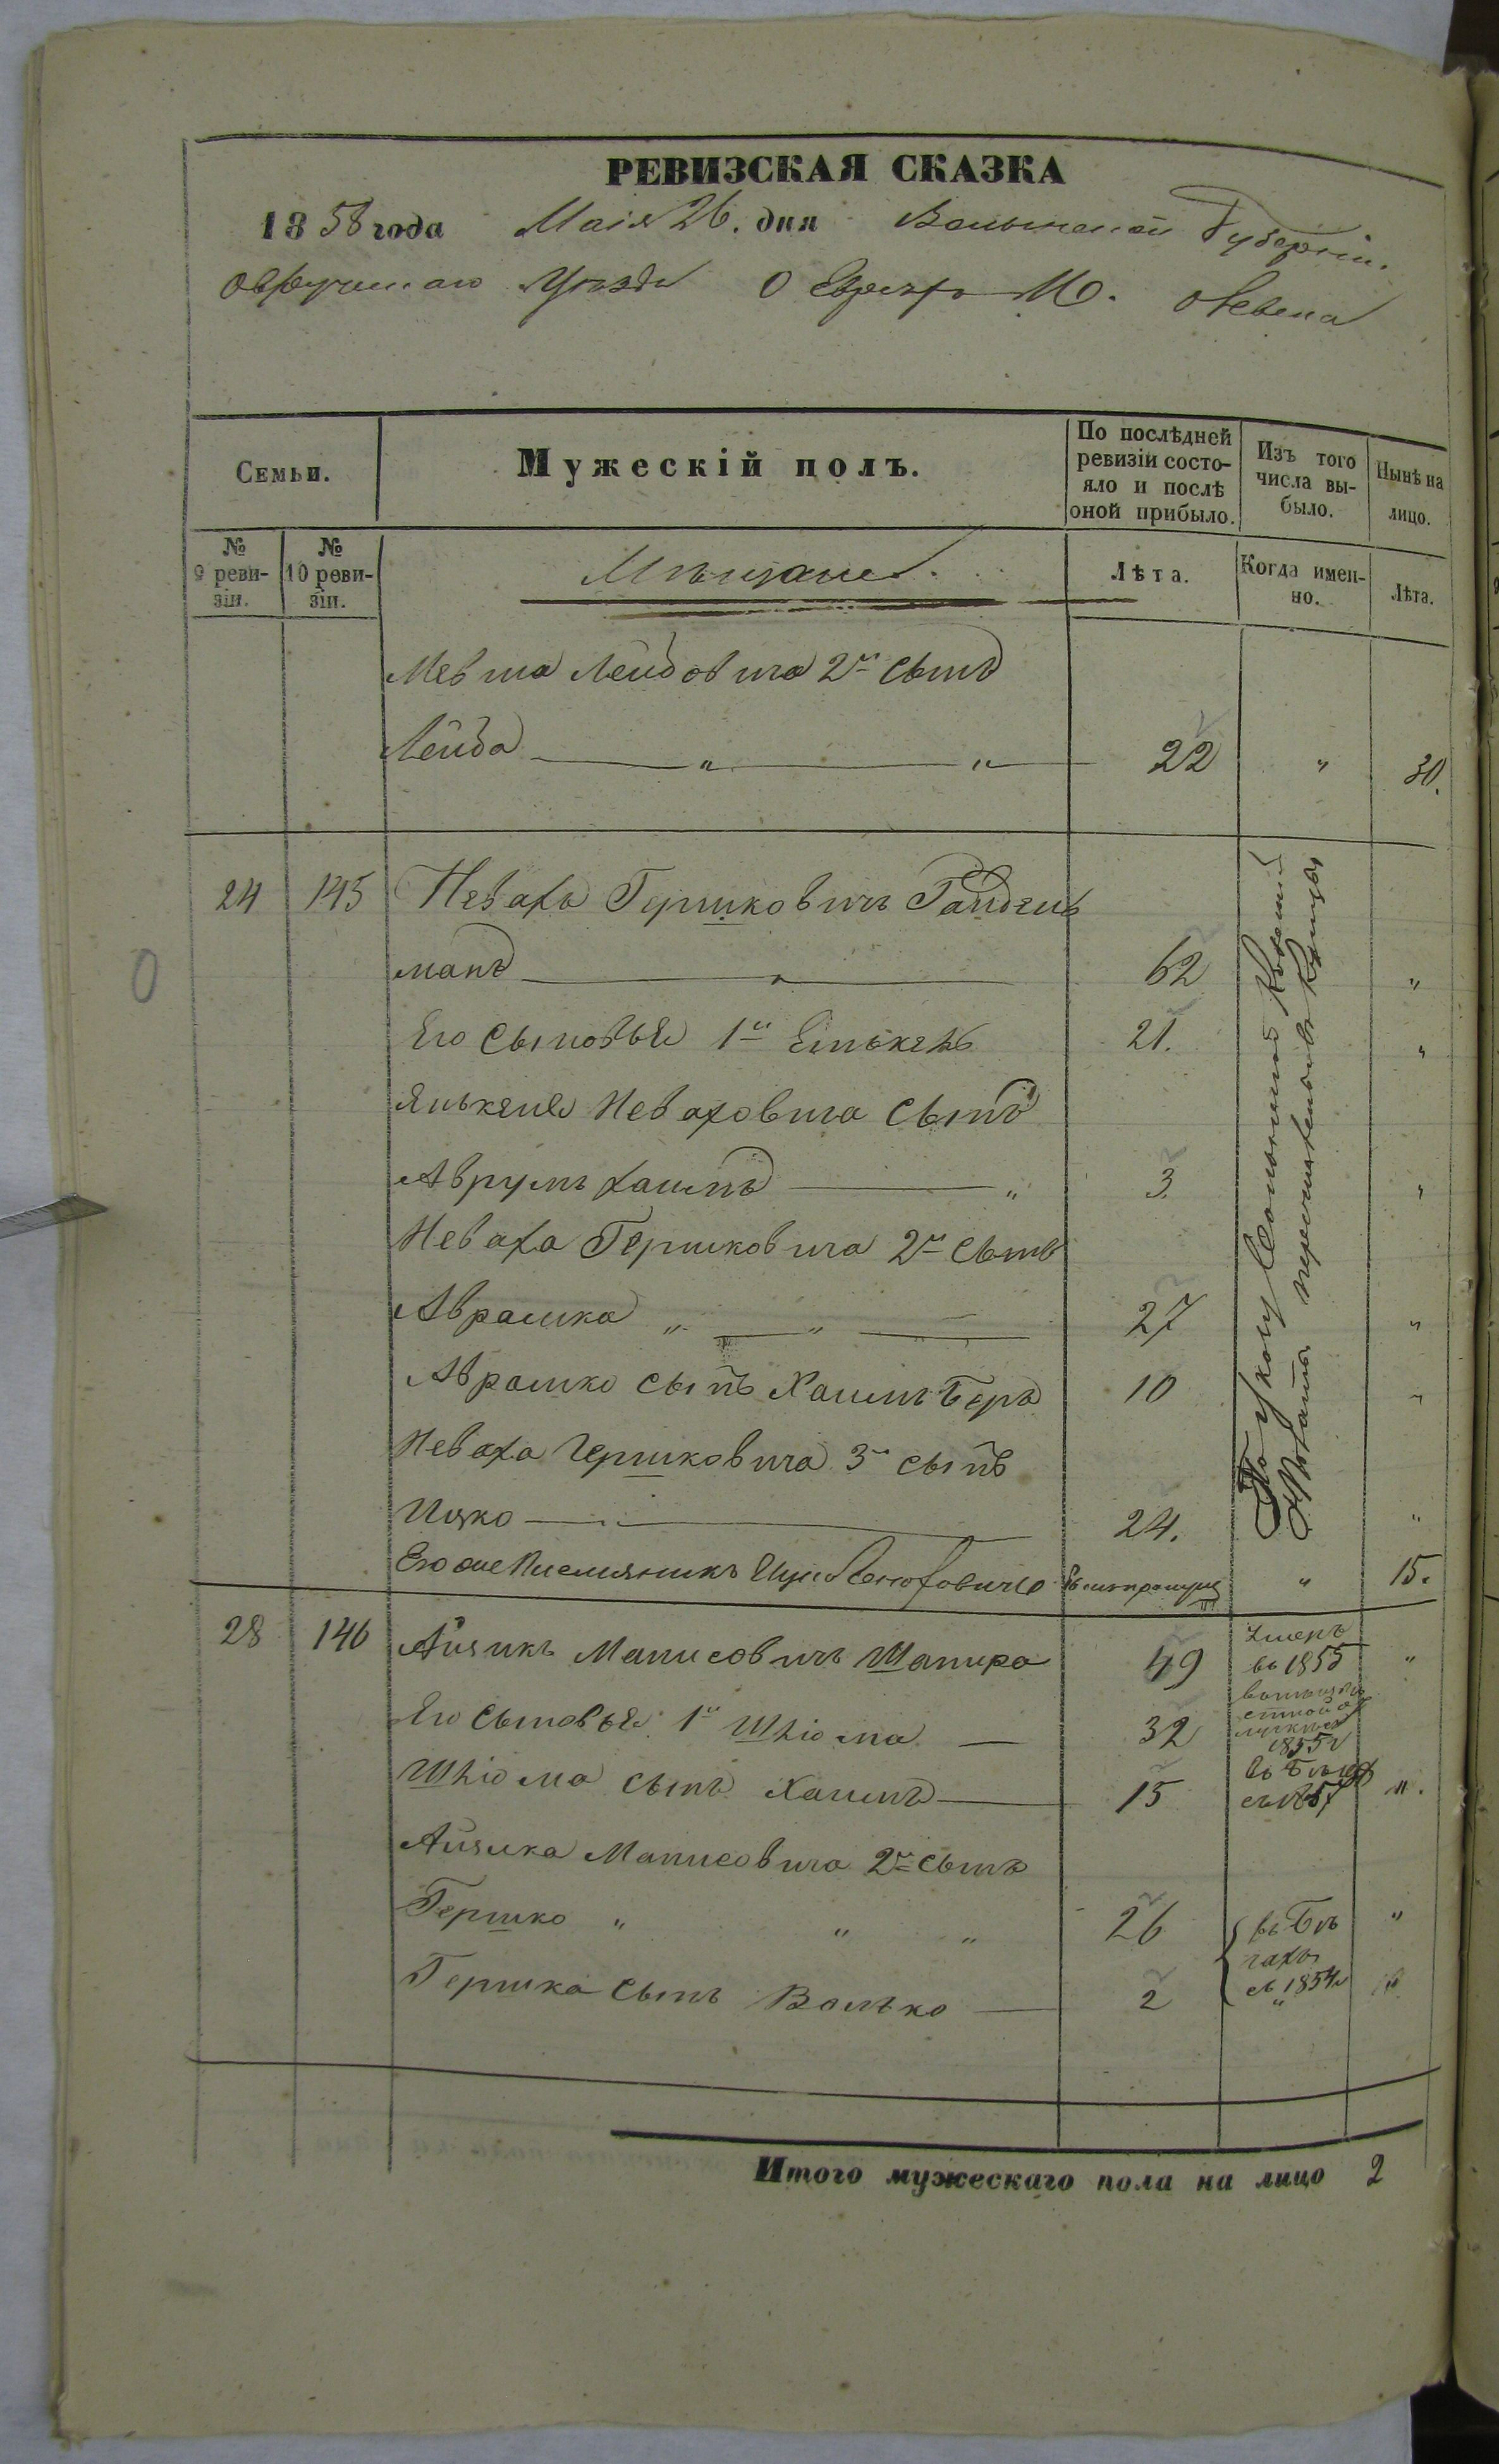 РЕВИЗСКАЯ СКАЗКА
1858 года Маія 26. дня Волынской Губерніи.
Овручскаго Уѣзда О Евреяхъ М. Олевска
Семьи.
Мужескій полъ.
По послѣдней ревизіи состояло и послѣ оной прибыло.
Изъ того числа выбыло.
Нынѣ на лицо.
№ 9 ревизіи.
№ 10 ревизіи.
Мѣщане.
Лѣта.
Когда именно.
Лѣта.
Лейбовича 2й сынъ
Лейба " " 22 " 30.
24 145 Невахъ Гершковичъ
манъ 62 "
Его сыновья 1й 21. "
Неваховича сынъ
Аврумъ Хаимъ " 3 "
Неваха Гершковича 2й сынъ
Аврамко " " 27 "
Аврамко сынъ Хаимъ Беръ 10 "
Неваха Гершковича 3й сынъ
Ицко 24. "
По указу Казенной
Палаты перечислены въ Купцы
Его же Племянникъ " 15.
28 146 Айзикъ Манисовичъ Шапиро 49 Умеръ въ 1855 "
Его сыновья 1й Шліома 32 1855
Шліома сынъ Хаимъ 15 въ бѣгахъ съ 1857 "
Айзика Манисовича 2й сынъ
Гершко " " " 26 въ бѣгахъ съ 1854 "
Гершка сынъ Волько 2 " "
Итого мужескаго пола на лицо 2